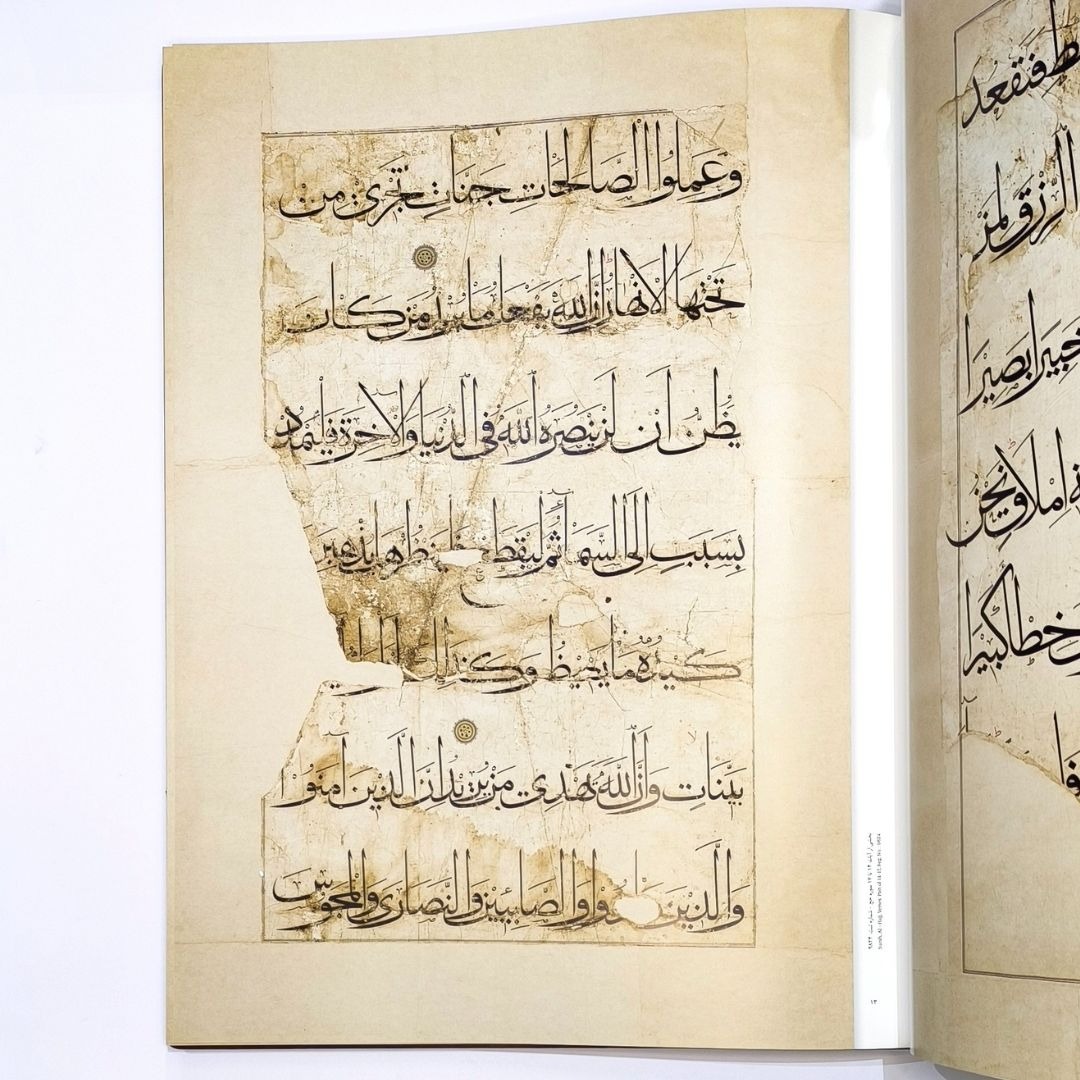 وَعَمِلُوا الصَّالِحَاتِ جَنَّاتٍ تَجْرِي مِنْ
تَحْتِهَا الْاَنْهَارُ اِنَّ اللَّهَ يَفْعَلُ مَا يُرِيدُ مَنْ كَانَ
يَظُنُّ اَنْ لَنْ يَنْصُرَهُ اللَّهُ فِي الدُّنْيَا وَالْاٰخِرَةِ فَلْيَمْدُدْ
بِسَبَبٍ اِلَى السَّمَآ ثُمَّ لْيَقْطَع هَلْ يُذْهِبَنَّ
كَيْدُهُ مَا يَغِيظُ وَكَذٰلِكَ
بَيِّنَاتٍ وَاَنَّ اللَّهَ يَهْدِي مَنْ يُرِيدُ اِنَّ الَّذِينَ اٰمَنُوا
وَالَّذِينَ وَالصَّابِئِينَ وَالنَّصَارَى وَالْمَجُوسَ
بخشی از آیات ۱۴ تا ۱۷ سوره حج - شماره ثبت: ۹۸۲۴
۱۳
فَتَقْعُدَ
الرِّزْقَ لِمَنْ
خَبِيرًا بَصِيرًا
اِمْلَاقٍ نَحْنُ
خِطْأً كَبِيرًا